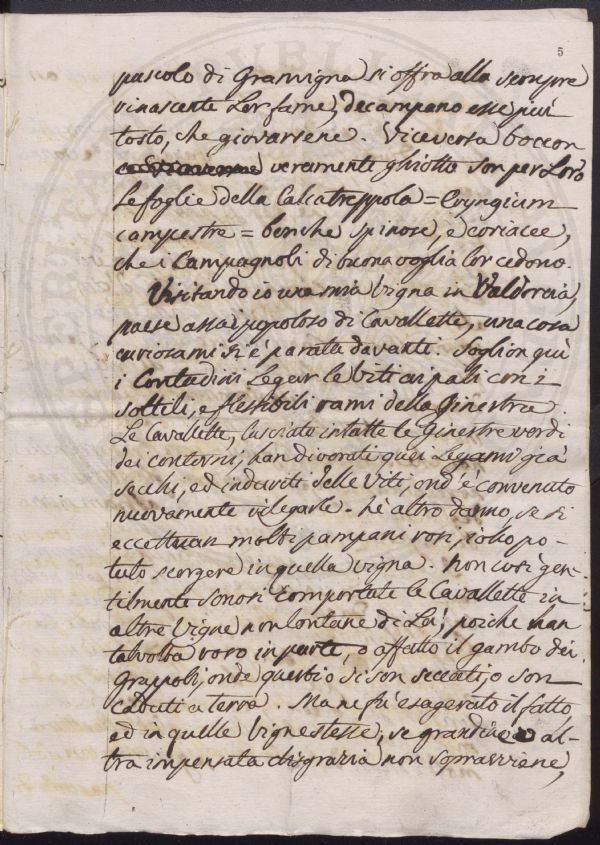 5
pascolo di Gramigna si offra alla sempre
rinascente Lor fame, decampano esse più
tosto, che giovarsene. Viceversa boccon
veramente ghiotto son per Loro
Le foglie della Calcatreppola = Eryngium
campestre = benche spinose, e coriacee,
che i Campagnoli di buona voglia lor cedono.
Visitando io una mia Vigna in Valdorcia,
paese assai popoloso di Cavallette, una cosa
curiosa mi si è parata davanti. Soglion quì
i Contadini Legar le Viti ai pali con i
sottili, e flessibili rami della Ginestra.
Le Cavallette, lasciato intatte le Ginestre verdi
dei contorni, han divorati quei Legami già
secchi, ed induriti delle Viti, ond'è convenuto
nuovamente rilegarle. Nè altro danno, se si
eccettuan molti pampani rosi, io ho po-
tuto scorgere in quella vigna. Non così gen-
tilmente sonosi comportate le Cavallette in
altre Vigne non lontane di Lì, poiche han
talvolta roso in parte, o affatto il gambo dei
Grappoli, onde questi o si son seccati, o son
caduti a terra. Ma ne fu esagerato il fatto
ed in quelle vigne stesse, se grandine o al-
tra impensata disgrazia non sopravviene,